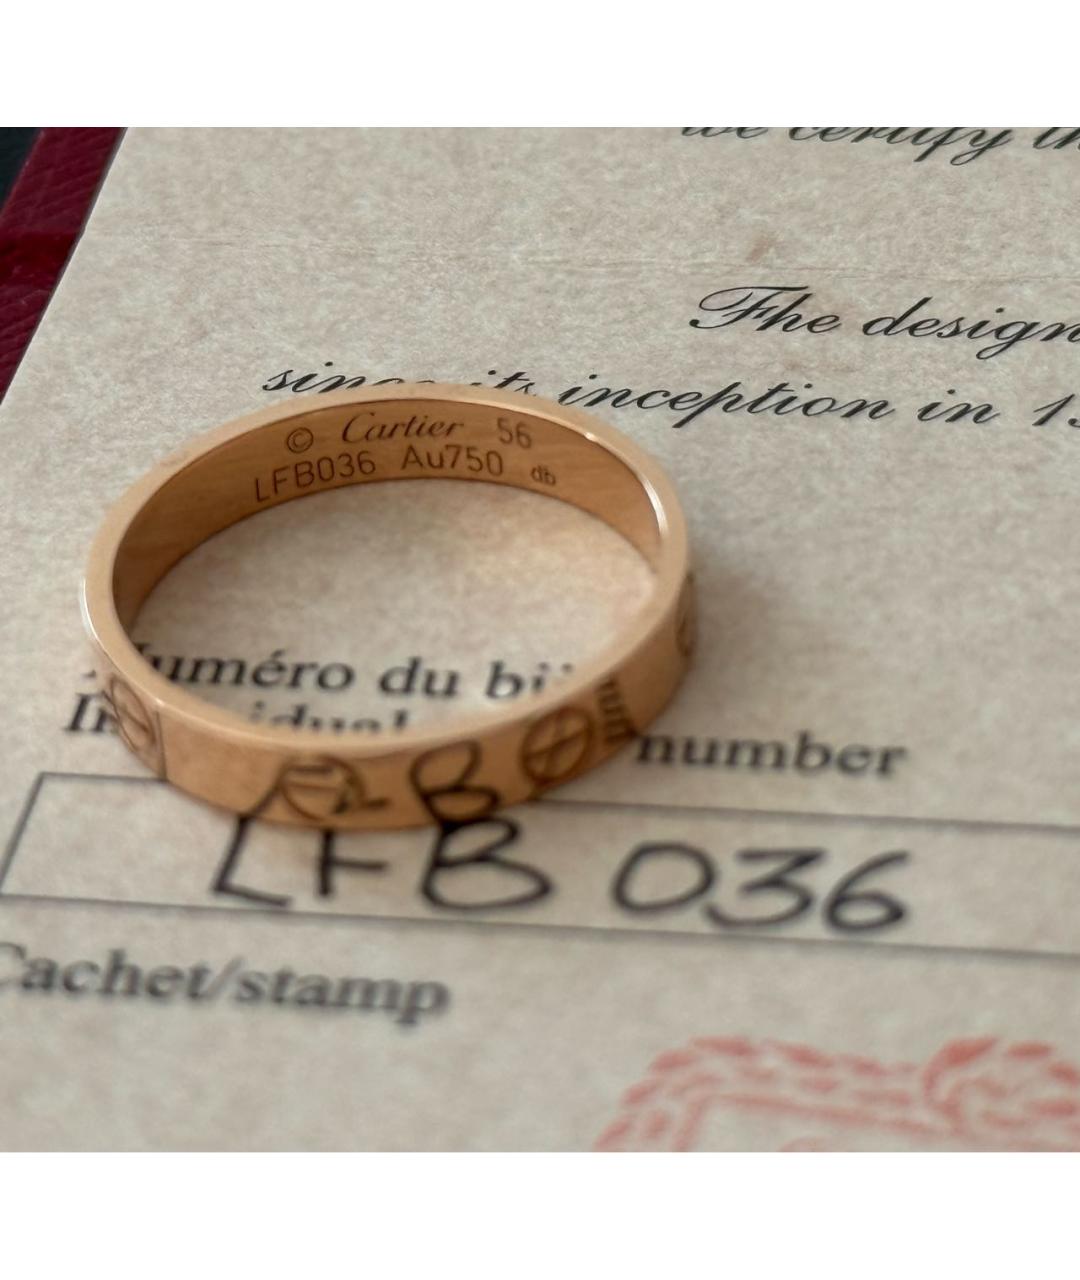 we certify
The design
since its inception in
© Cartier 56
LFB036 Au750 db
Numéro du
number
LFB 036
Cachet/stamp